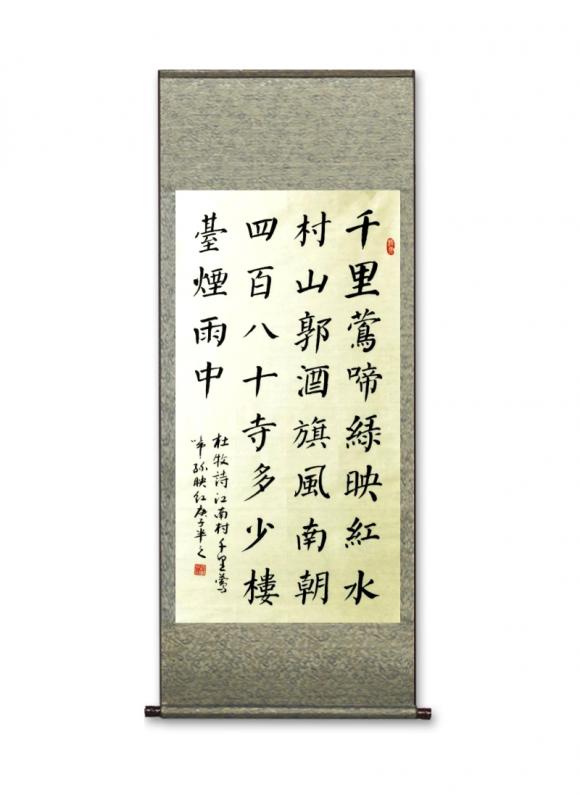 千里鶯啼緑映紅水
村山郭酒旗風南朝
四百八十寺多少樓
臺煙雨中
杜牧詩江南村千里鶯
啼緑映紅庚子